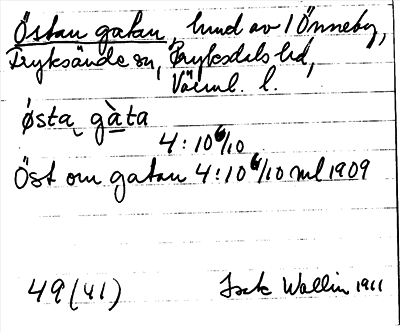 Östan gatan, hmd av 1 Önneby,
Fryksände sn, Fryksdals hd,
Värml. l.
østa gàta
4:10 6/10
Öst om gatan 4:10 6/10 ml 1909
49 (41)
Isak Wallin 1911